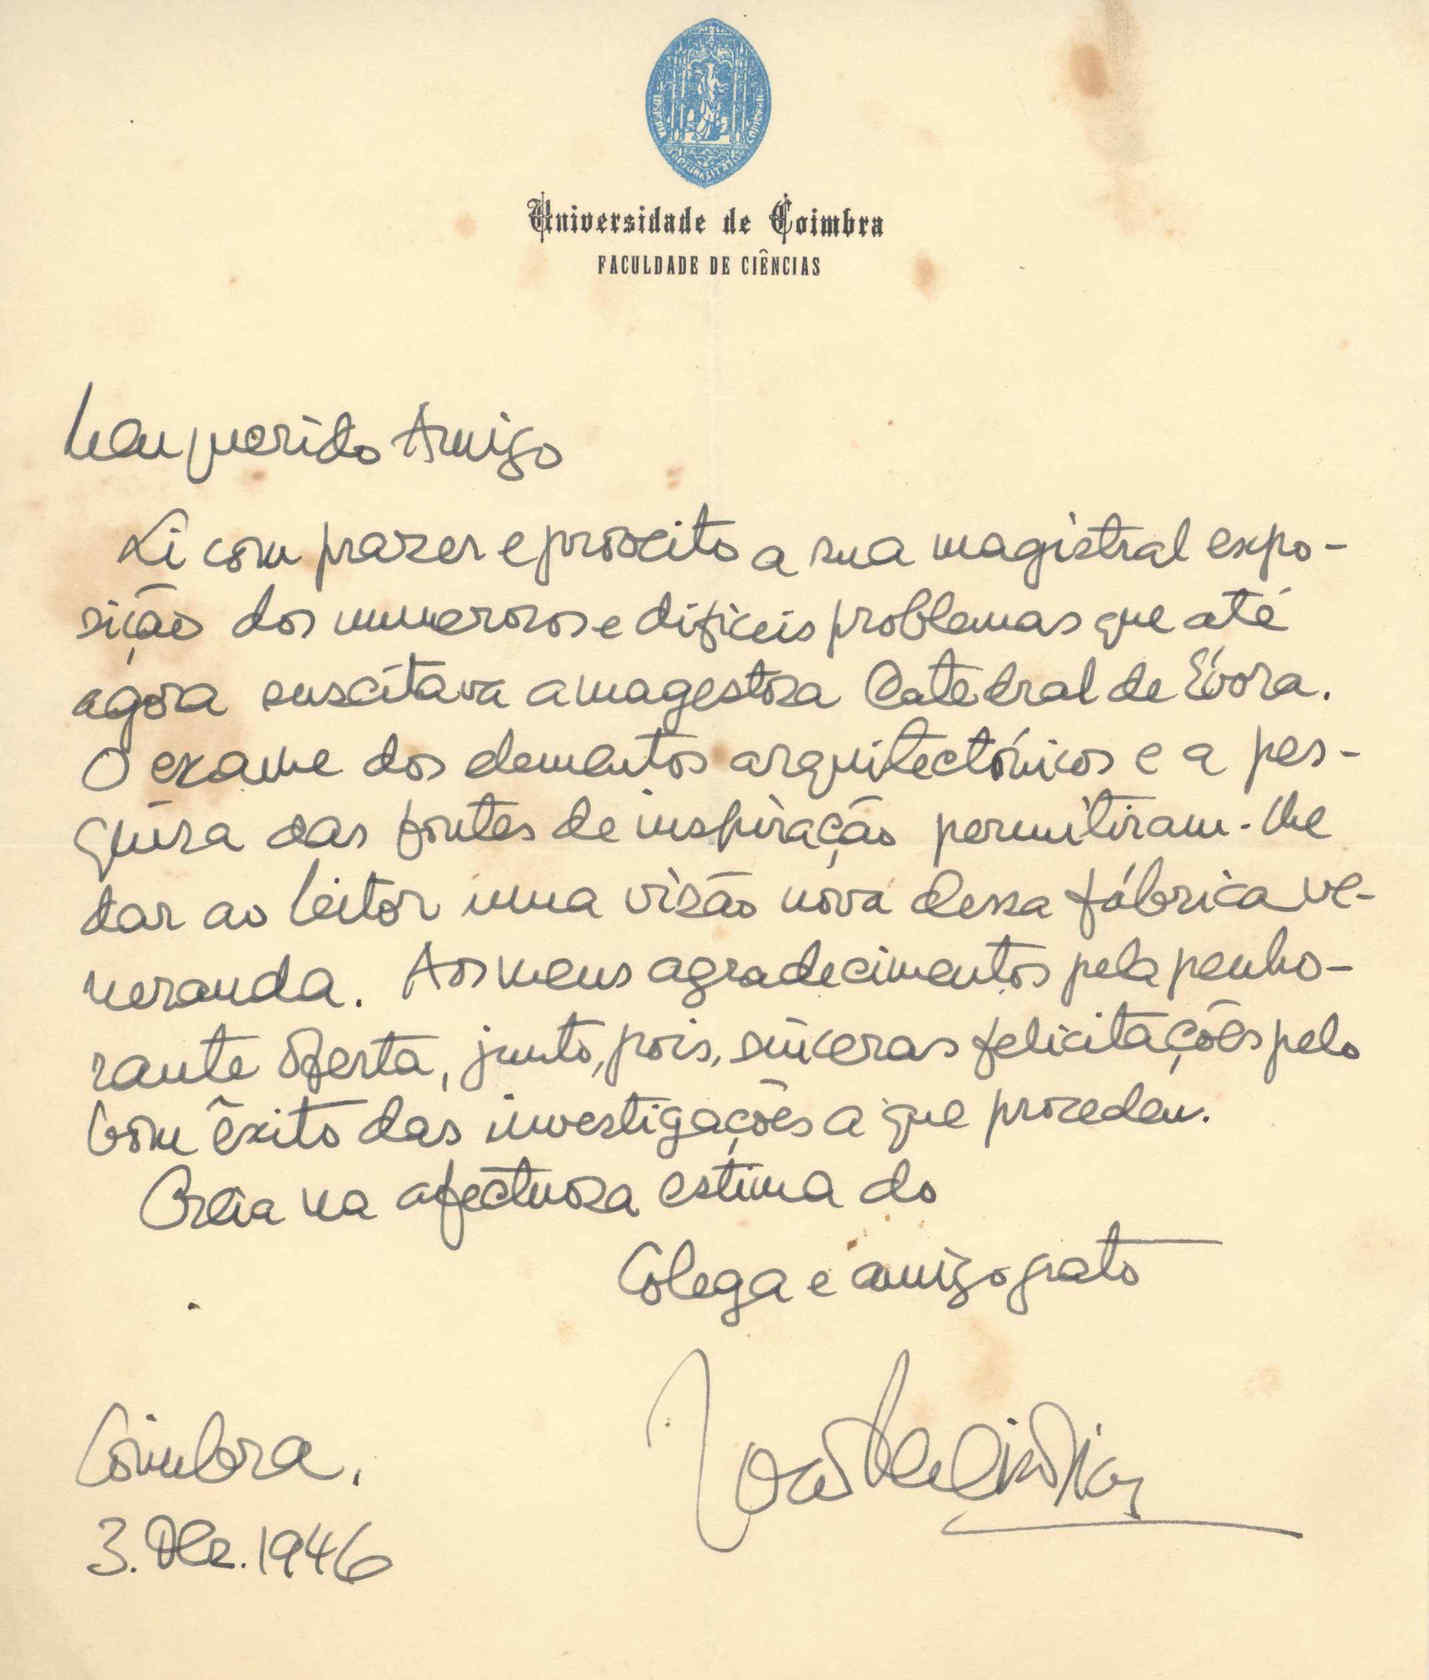 Universidade de Coimbra
FACULDADE DE CIÊNCIAS
Meu querido Amigo
Li com prazer e proveito a sua magistral expo-
sição dos numerosos e dificeis problemas que até
agora suscitava a magestosa Catedral de Évora.
O exame dos elementos arquitectónicos e a pes-
quisa das fontes de inspiração permitiram-lhe
dar ao leitor uma visão nova dessa fábrica ve-
neranda. Aos meus agradecimentos pela penho-
rante oferta, junto, pois, sinceras felicitações pelo
bom êxito das investigações a que procedeu.
Creia na afectuosa estima do
Colega e amigo grato
Coimbra,
3. Dez. 1946